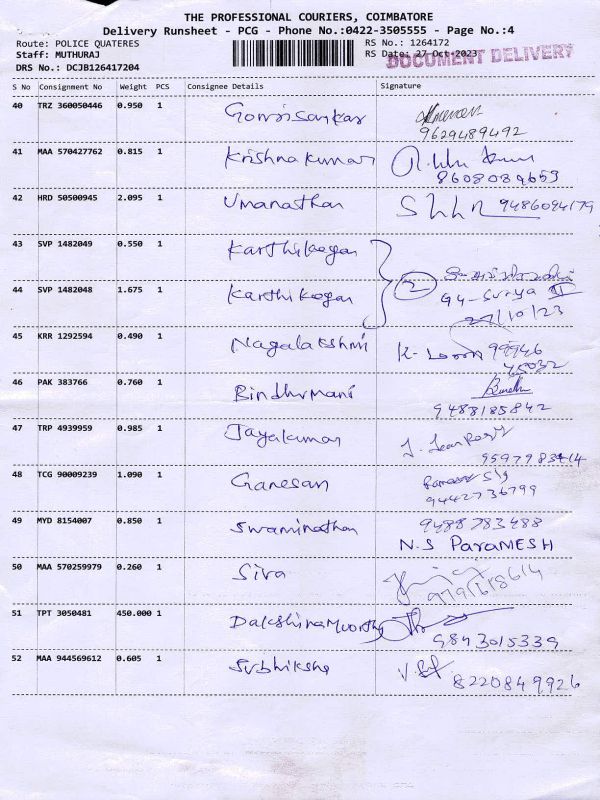 THE PROFESSIONAL COURIERS, COIMBATORE
Delivery Runsheet - PCG - Phone No.:0422-3505555 - Page No.:4
Route: POLICE QUATERES RS No.: 1264172
Staff: MUTHURAJ RS Date: 27-Oct-2023 DOCUMENT DELIVERY
DRS No.: DCJB126417204
S No Consignment No Weight PCS Consignee Details Signature
40 TRZ 360050446 0.950 1 Gowrisankar
9629489492
41 MAA 570427762 0.815 1 Krishnakumar
8608089653
42 HRD 50500945 2.095 1 Umanathan 9486094179
43 SVP 1482049 0.550 1 Karthikeyan
44 SVP 1482048 1.675 1 Karthikeyan 2 G4-Surya II
27/10/23
45 KRR 1292594 0.490 1 Nagalakshmi K. 99946
45032
46 PAK 383766 0.760 1 Bindhumani
9488185842
47 TRP 4939959 0.985 1 Jayakumar
9597983414
48 TCG 90009239 1.090 1 Ganesan
9442736799
49 MYD 8154007 0.850 1 Swaminathan 9488783488
N.S PARAMESH
50 MAA 570259979 0.260 1 Siva
9791618614
51 TPT 3050481 450.000 1 Dakshinamoorthy
9843015339
52 MAA 944569612 0.605 1 Subhiksha
8220849926